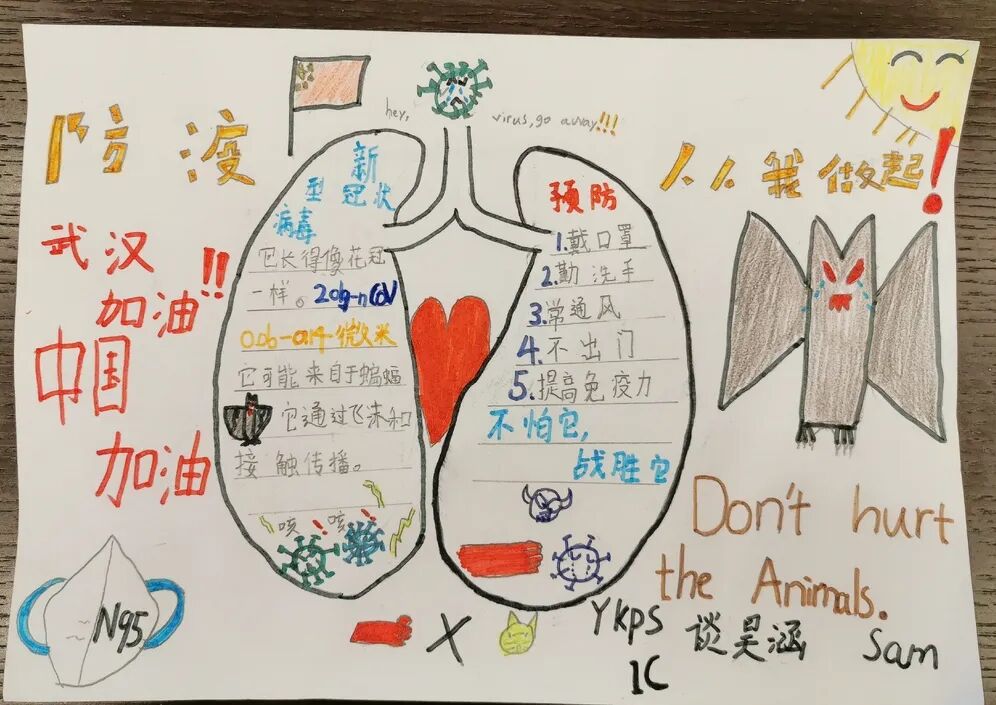 防疫
人人我做起！
hey,
virus, go away!!!
武汉
加油!!
中国
加油
新
型冠状
病毒
它长得像花冠
一样。2019-nCoV
0.06-0.14微米
它可能来自于蝙蝠
它通过飞沫和
接触传播。
咳!咳!
预防
1.戴口罩
2.勤洗手
3.常通风
4.不出门
5.提高免疫力
不怕它,
战胜它
N95
X
Don't hurt
the Animals.
YKPS 谈昊涵 Sam
1C